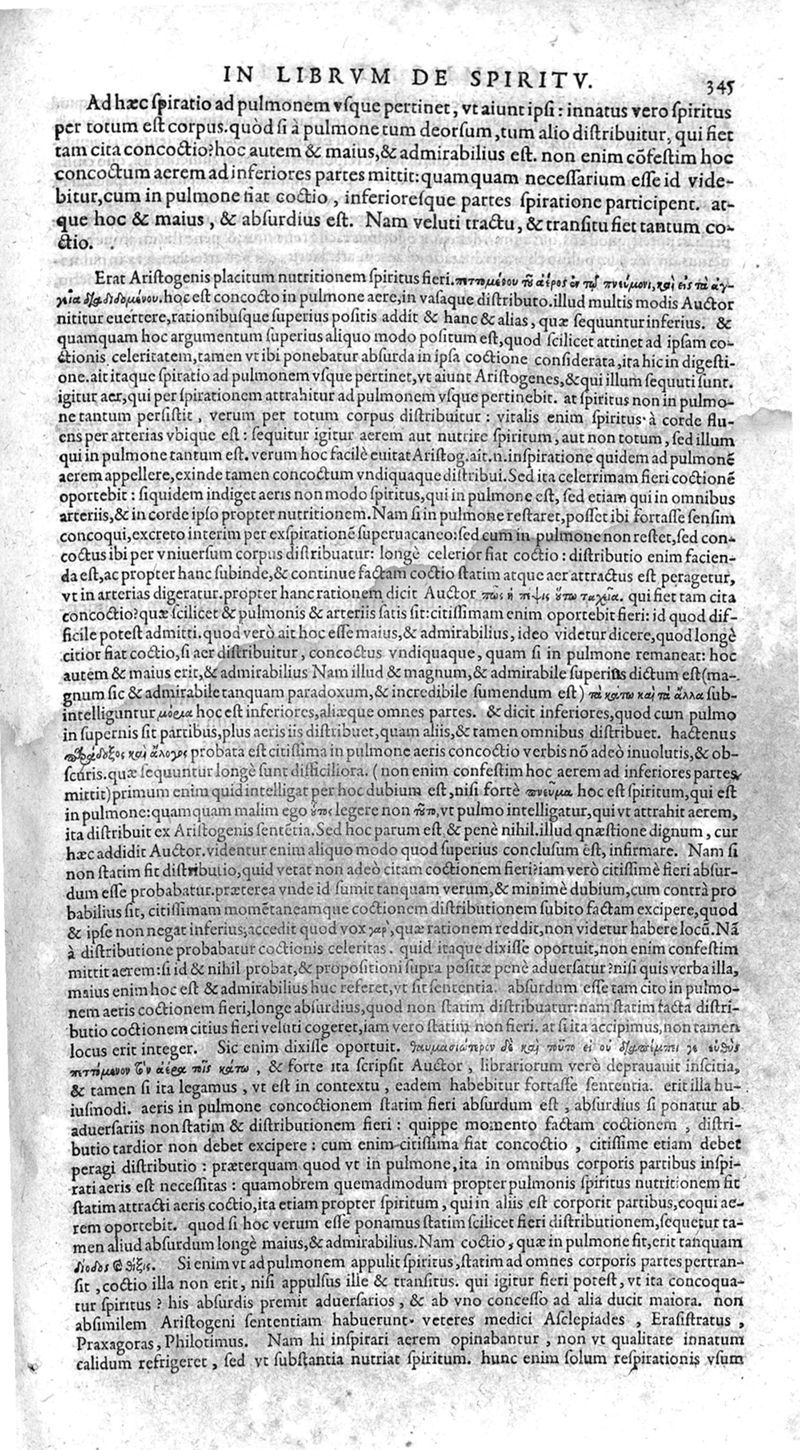 IN LIBRVM DE SPIRITV. 345
Ad hæc ſpiratio ad pulmonem vſque pertinet, vt aiunt ipſi: innatus vero ſpiritus
per totum eſt corpus. quòd ſi à pulmone tum deorſum, tum alio diſtribuitur, qui fiet
tam cita concoctio? hoc autem & maius, & admirabilius eſt. non enim cõfeſtim hoc
concoctum aerem ad inferiores partes mittit: quamquam neceſſarium eſſe id vide-
bitur, cum in pulmone fiat coctio, inferioreſque partes ſpiratione participent. at-
que hoc & maius, & abſurdius eſt. Nam veluti tractu, & tranſitu fiet tantum co-
ctio.
Erat Ariſtogenis placitum nutritionem ſpiritus fieri. πεττομένου τοῦ ἀέρος ἐν τῷ πνεύμονι, καὶ εἰς τὰ ἀγ-
γεῖα διαδιδομένου. hoc eſt concocto in pulmone aere, in vaſaque diſtributo. illud multis modis Auctor
nititur euertere, rationibuſque ſuperius poſitis addit & hanc & alias, quæ ſequuntur inferius. &
quamquam hoc argumentum ſuperius aliquo modo poſitum eſt, quod ſcilicet attinet ad ipſam co-
ctionis celeritatem, tamen vt ibi ponebatur abſurda in ipſa coctione conſiderata, ita hic in digeſti-
one. ait itaque ſpiratio ad pulmonem vſque pertinet, vt aiunt Ariſtogenes, & qui illum ſequuti ſunt.
igitur aer, qui per ſpirationem attrahitur ad pulmonem vſque pertinebit. at ſpiritus non in pulmo-
ne tantum perſiſtit, verum per totum corpus diſtribuitur: vitalis enim ſpiritus à corde flu-
ens per arterias vbique eſt: ſequitur igitur aerem aut nutrire ſpiritum, aut non totum, ſed illum
qui in pulmone tantum eſt. verum hoc facilè euitat Ariſtog. ait. n. inſpiratione quidem ad pulmonẽ
aerem appellere, exinde tamen concoctum vndiquaque diſtribui. Sed ita celerrimam fieri coctionẽ
oportebit: ſiquidem indiget aeris non modo ſpiritus, qui in pulmone eſt, ſed etiam qui in omnibus
arteriis, & in corde ipſo propter nutritionem. Nam ſi in pulmone reſtaret, poſſet ibi fortaſſe ſenſim
concoqui, excreto interim per exſpirationẽ ſuperuacaneo: ſed cum in pulmone non reſtet, ſed con-
coctus ibi per vniuerſum corpus diſtribuatur: longè celerior fiat coctio: diſtributio enim facien-
da eſt, ac propter hanc ſubinde, & continue factam coctio ſtatim atque aer attractus eſt peragetur,
vt in arterias digeratur. propter hanc rationem dicit Auctor πῶς ἡ πέψις οὕτω ταχεῖα. qui fiet tam cita
concoctio? quæ ſcilicet & pulmonis & arteriis ſatis ſit: citiſſimam enim oportebit fieri: id quod dif-
ficile poteſt admitti. quod verò ait hoc eſſe maius, & admirabilius, ideo videtur dicere, quod longè
citior fiat coctio, ſi aer diſtribuitur, concoctus vndiquaque, quam ſi in pulmone remaneat: hoc
autem & maius erit, & admirabilius Nam illud & magnum, & admirabile ſuperius dictum eſt (ma-
gnum ſic & admirabile tanquam paradoxum, & incredibile ſumendum eſt) τὰ κάτω καὶ τὰ ἄλλα ſub-
intelliguntur μόρια hoc eſt inferiores, aliæque omnes partes. & dicit inferiores, quod cum pulmo
in ſupernis ſit partibus, plus aeris iis diſtribuet, quam aliis, & tamen omnibus diſtribuet. hactenus
παράδοξος καὶ ἄλογος probata eſt citiſſima in pulmone aeris concoctio verbis nõ adeò inuolutis, & ob-
ſcuris. quæ ſequuntur longè ſunt difficiliora. (non enim confeſtim hoc aerem ad inferiores partes
mittit) primum enim quid intelligat per hoc dubium eſt, niſi fortè πνεῦμα hoc eſt ſpiritum, qui eſt
in pulmone: quamquam malim ego οὗτος legere non τοῦτο, vt pulmo intelligatur, qui vt attrahit aerem,
ita diſtribuit ex Ariſtogenis ſentẽtia. Sed hoc parum eſt, & penè nihil. illud quæſtione dignum, cur
hæc addidit Auctor. videntur enim aliquo modo quod ſuperius concluſum eſt, infirmare. Nam ſi
non ſtatim fit diſtributio, quid vetat non adeò citam coctionem fieri? iam verò citiſſimè fieri abſur-
dum eſſe probabatur. præterea vnde id ſumit tanquam verum, & minimè dubium, cum contrà pro
babilius ſit, citiſſimam momẽtaneamque coctionem diſtributionem ſubito factam excipere, quod
& ipſe non negat inferius; accedit quod vox γὰρ, quæ rationem reddit, non videtur habere locũ. Nã
à diſtributione probabatur coctionis celeritas. quid itaque dixiſſe oportuit, non enim confeſtim
mittit aerem: ſi id & nihil probat, & propoſitioni ſupra poſitæ penè aduerſatur? niſi quis verba illa,
maius enim hoc eſt & admirabilius huc referet, vt ſit ſententia. abſurdum eſſe tam cito in pulmo-
nem aeris coctionem fieri, longe abſurdius, quod non ſtatim diſtribuatur: nam ſtatim facta diſtri-
butio coctionem citius fieri veluti cogeret, iam vero ſtatim non fieri. at ſi ita accipimus, non tamen
locus erit integer. Sic enim dixiſſe oportuit. θαυμασιώτερον δὲ καὶ τοῦτο εἰ οὐ διαπέμπει γε εὐθὺς
πεττόμενον τὸν ἀέρα τοῖς κάτω, & forte ita ſcripſit Auctor, librariorum verò deprauauit inſcitia,
& tamen ſi ita legamus, vt eſt in contextu, eadem habebitur fortaſſe ſententia. erit illa hu-
iuſmodi. aeris in pulmone concoctionem ſtatim fieri abſurdum eſt, abſurdius ſi ponatur ab
aduerſariis non ſtatim & diſtributionem fieri: quippe momento factam coctionem, diſtri-
butio tardior non debet excipere: cum enim citiſſima fiat concoctio, citiſſime etiam debet
peragi diſtributio: præterquam quod vt in pulmone, ita in omnibus corporis partibus inſpi-
rati aeris eſt neceſſitas: quamobrem quemadmodum propter pulmonis ſpiritus nutritionem fit
ſtatim attracti aeris coctio, ita etiam propter ſpiritum, qui in aliis eſt corporit partibus, coqui ae-
rem oportebit. quod ſi hoc verum eſſe ponamus ſtatim ſcilicet fieri diſtributionem, ſequetur ta-
men aliud abſurdum longè maius, & admirabilius. Nam coctio, quæ in pulmone fit, erit tanquam
δίοδος & θίξις. Si enim vt ad pulmonem appulit ſpiritus, ſtatim ad omnes corporis partes pertran-
ſit, coctio illa non erit, niſi appulſus ille & tranſitus. qui igitur fieri poteſt, vt ita concoqua-
tur ſpiritus? his abſurdis premit aduerſarios, & ab vno conceſſo ad alia ducit maiora. non
abſimilem Ariſtogeni ſententiam habuerunt veteres medici Aſclepiades, Eraſiſtratus,
Praxagoras, Philotimus. Nam hi inſpirari aerem opinabantur, non vt qualitate innatum
calidum refrigeret, ſed vt ſubſtantia nutriat ſpiritum. hunc enim ſolum reſpirationis vſum